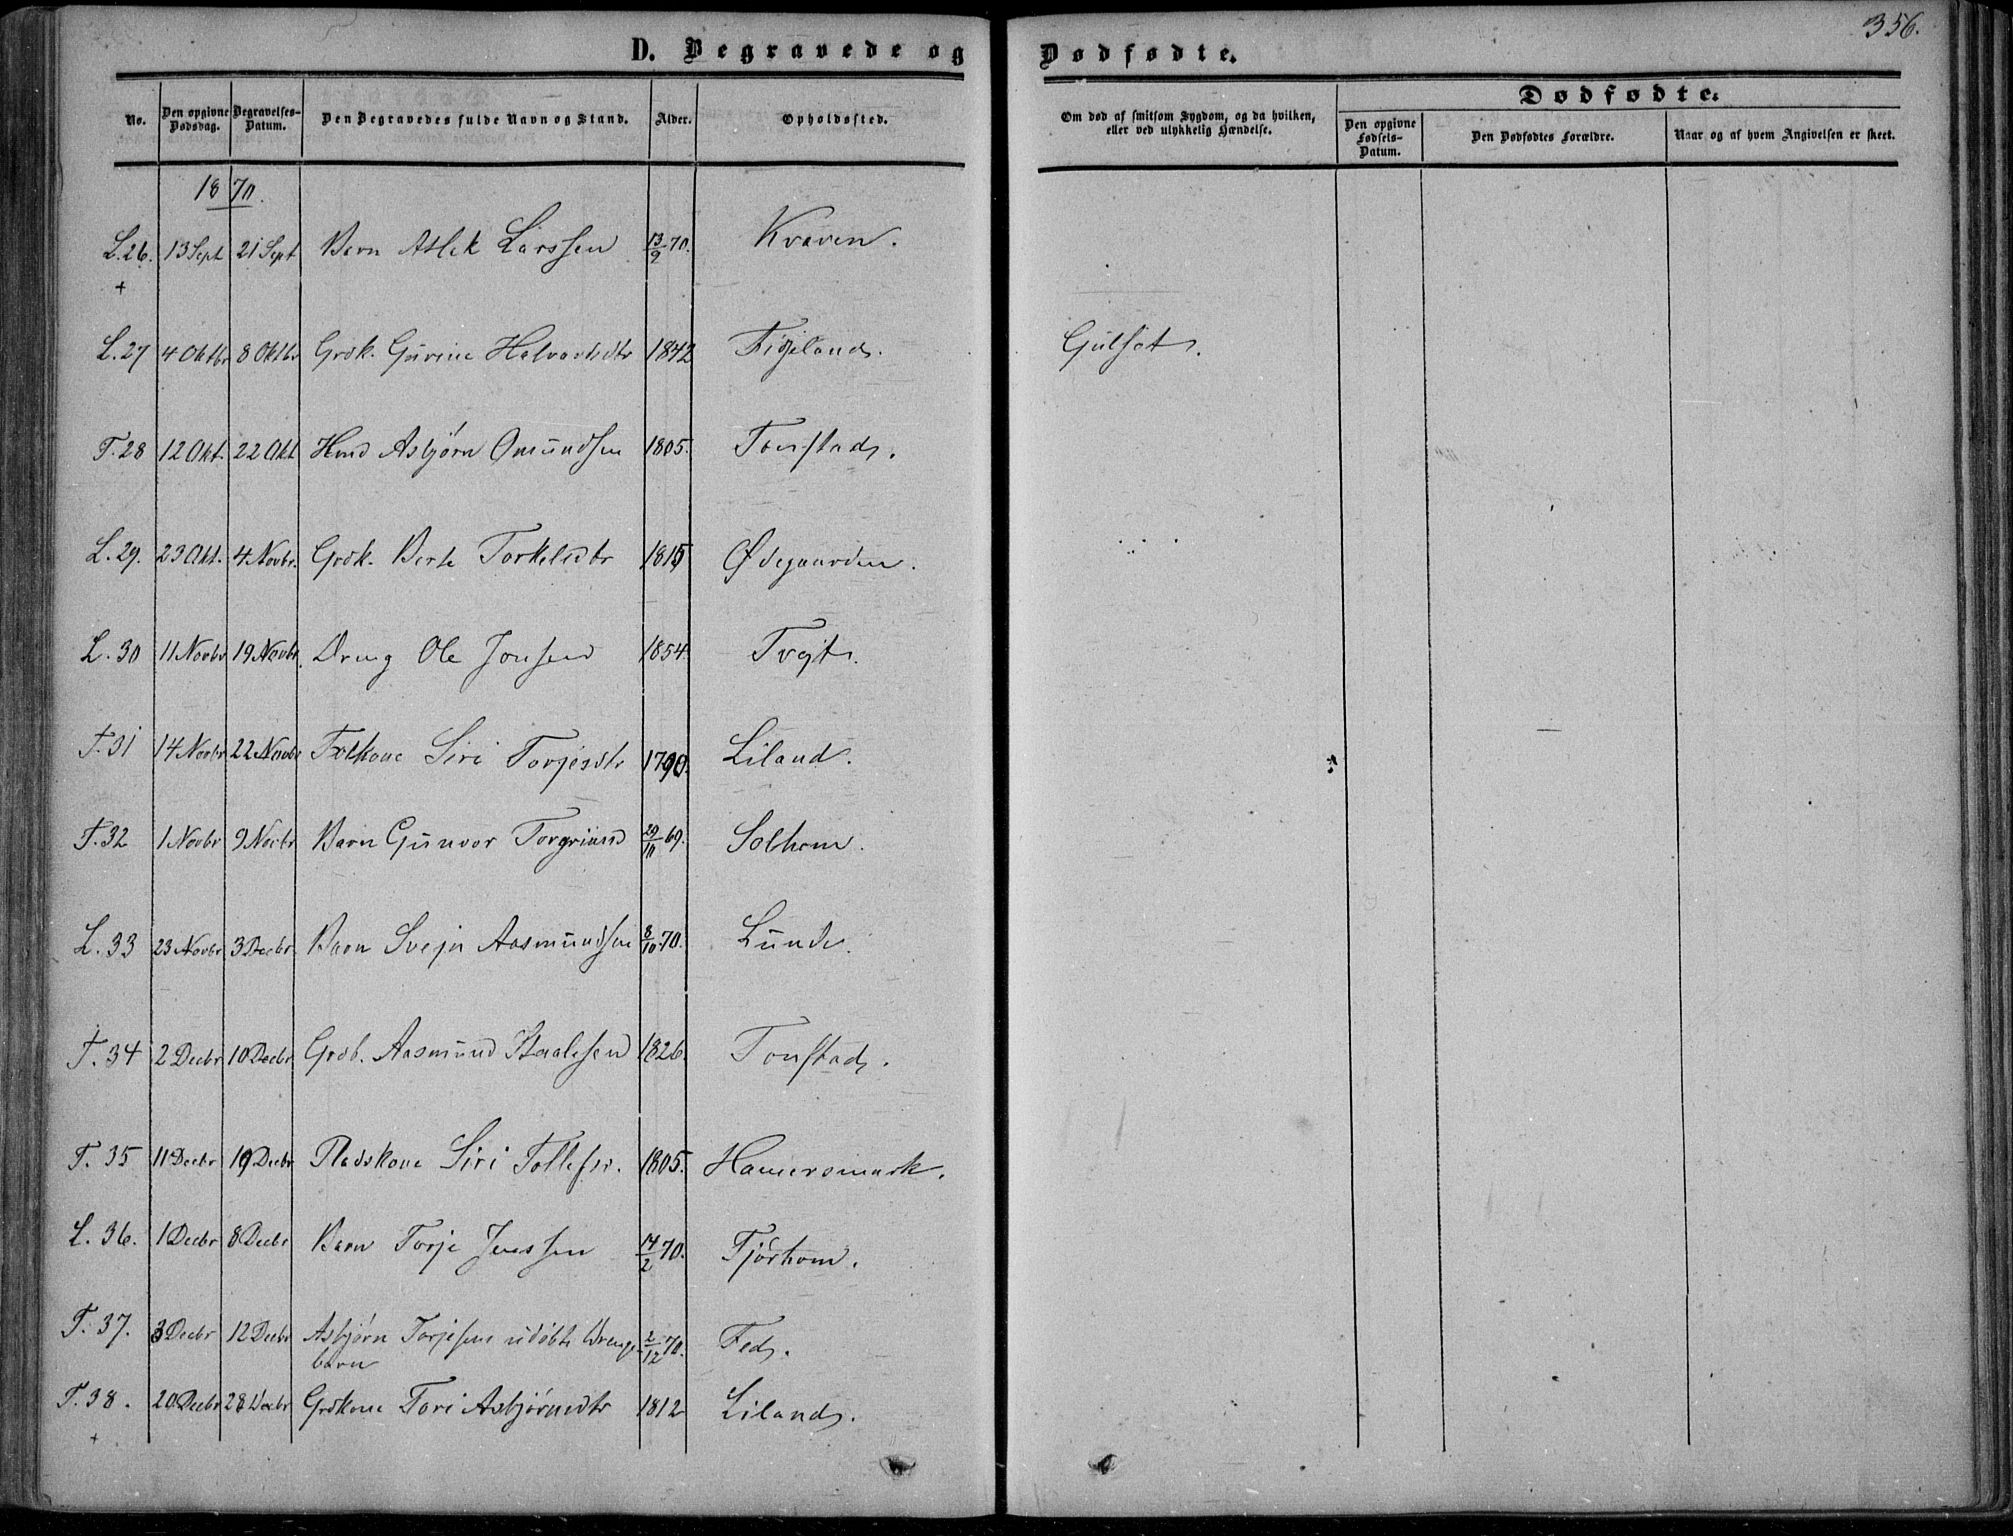 356.
D. Begravede og Dødfødte.
No. Den opgivne Dødsdag. Begravelses-Datum. Den Begravedes fulde Navn og Stand. Alder. Opholdssted. Om død af smitsom Sygdom, og da hvilken, eller ved ulykkelig Hændelse. Dødfødte.
Den opgivne Fødsels-Datum. Den Dødfødtes Forældre. Naar og af hvem Angivelsen er skeet.
1870.
L. 26. 13 Sept 21 Sept Barn Atlak Larssen 13/9 70. Kvæven.
+
L. 27 4 Oktbr 8 Oktbr Grdk. Gurine Halvorsdtr 1842 Figjeland. Gulsot.
T. 28 12 Okt. 22 Okt Hmd Asbjørn Omundsen 1805. Tonstad.
L. 29. 23 Okt. 4 Novbr. Grdk. Berte Torkelsdtr 1815 Ødegaarden.
L. 30 11 Novbr 19 Novbr. Dreng Ole Jonsen 1854. Tvejt.
T. 31 14 Novbr 22 Novbr Folkone Siri Torjesdtr 1790. Liland.
T. 32 1 Novbr 9 Novbr Barn Gunvor Torgrimsd 29/10 69. Solhom.
L. 33 23 Novbr 3 Decbr. Barn Svejn Aasmundsen 8/10 70. Lunde.
T. 34 2 Decbr 10 Decbr Grdb. Aasmund Staalesen 1826. Tonstad.
T. 35 11 Decbr 19 Decbr Pladskone Siri Tollefsd. 1805. Hamersmark.
L. 36. 1 Decbr 8 Decbr Barn Torje Jenssen 14/2 70. Fjørhom.
T. 37. 3 Decbr 12 Decbr Asbjørn Torjesens udøbte Drenge-
barn 2/12 70. Fed.
T. 38. 20 Decbr 28 Decbr Grdkone Tori Asbjørnsdtr 1812 Liland.
+